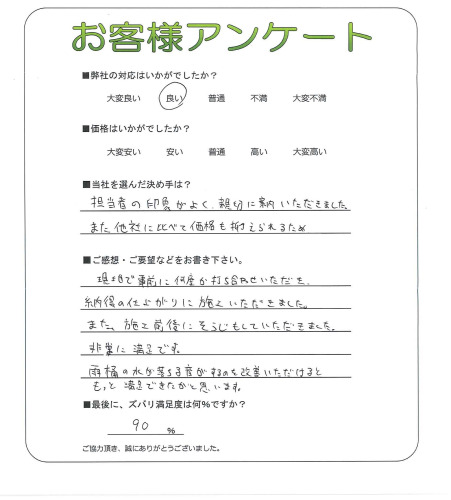 お客様アンケート
■弊社の対応はいかがでしたか？
大変良い 良い 普通 不満 大変不満
■価格はいかがでしたか？
大変安い 安い 普通 高い 大変高い
■当社を選んだ決め手は？
担当者の印象がよく、親切に案内いただきました。
また他社に比べて価格も抑えられるため
■ご感想・ご要望などをお書き下さい。
現地で事前に何度か打ち合わせいただき、
納得の仕上がりに施工いただきました。
また、施工前後にそうじもしていただきました。
非常に満足です。
雨樋の水が落ちる音がするのを改善いただけると
もっと満足できたかと思います。
■最後に、ズバリ満足度は何％ですか？
90 ％
ご協力頂き、誠にありがとうございました。